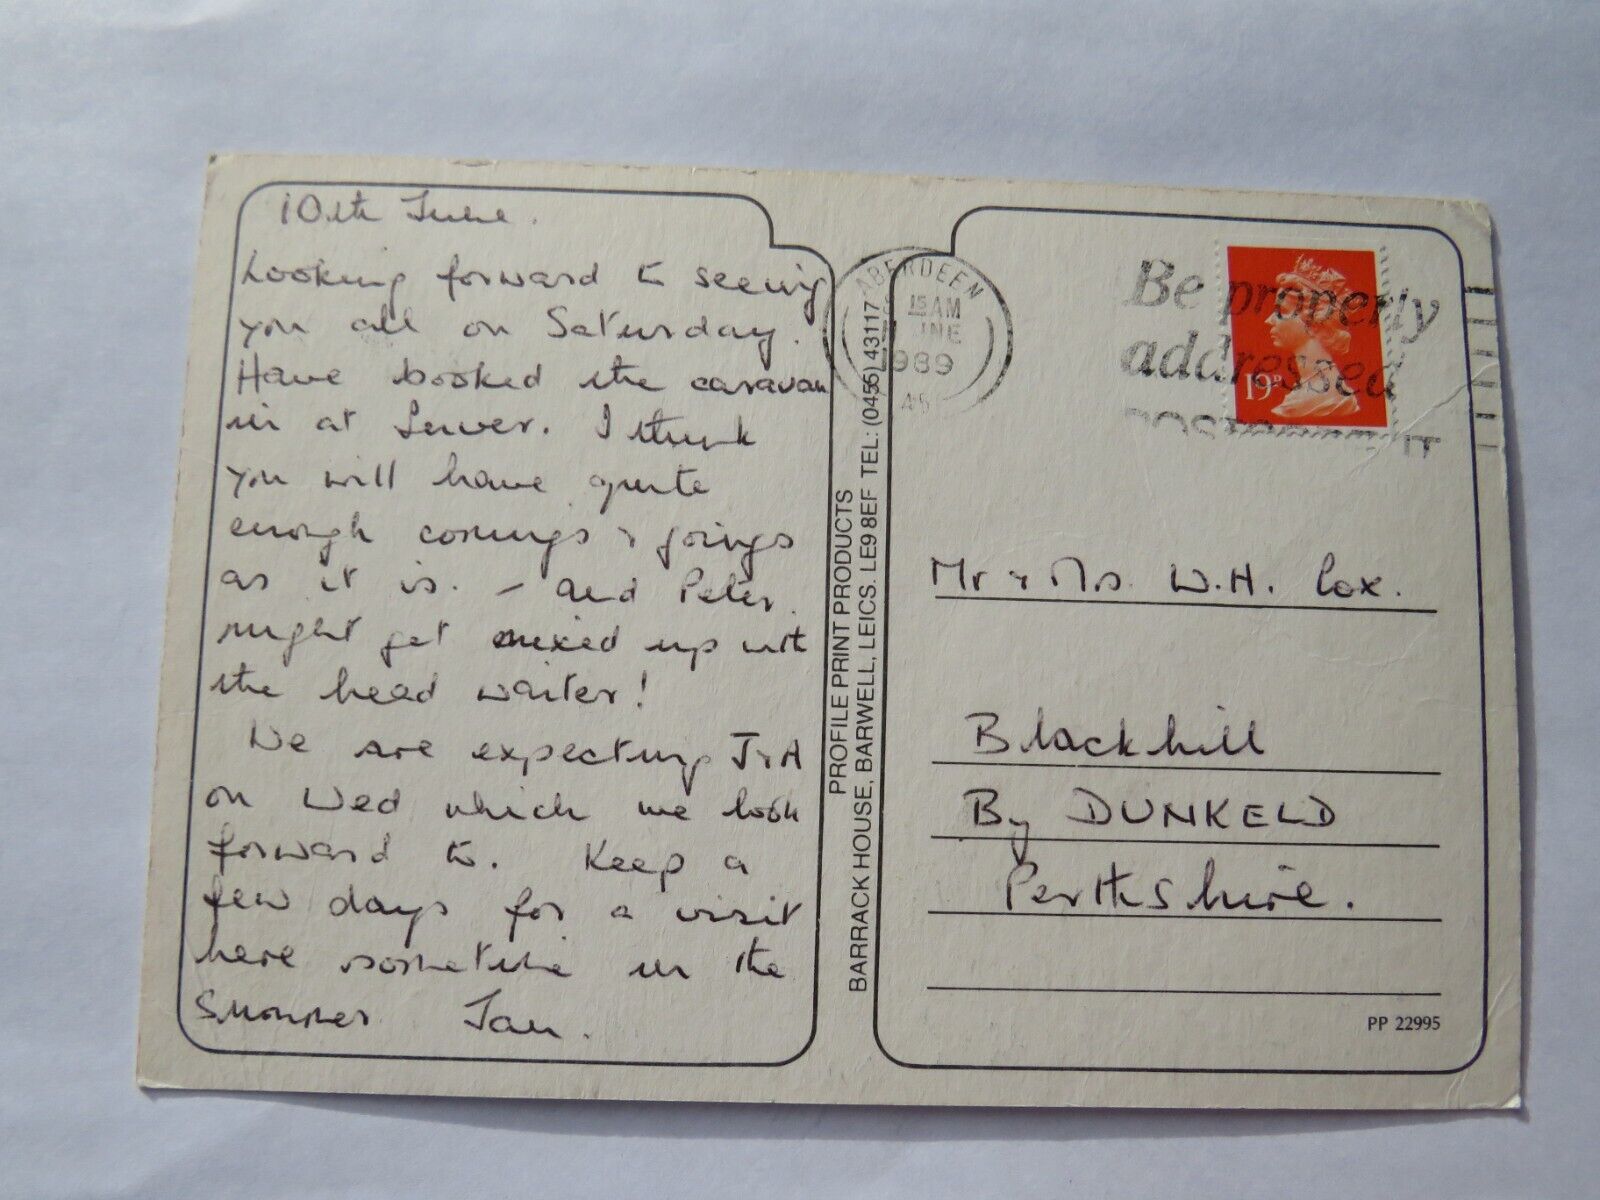 10th June.
Looking forward to seeing
you all on Saturday.
Have booked the caravan
in at Inver. I think
you will have quite
enough comings & goings
as it is. - and Peter
might get mixed up with
the head waiter!
We are expecting J & A
on Wed which we look
forward to. Keep a
few days for a visit
here sometime in the
Summer Jan.
PROFILE PRINT PRODUCTS
BARRACK HOUSE, BARWELL, LEICS. LE9 8EF TEL: (0455) 43117
ABERDEEN
15 AM
1989
Be properly
addressed
19P
Mr & Mrs. W.H. Cox.
Blackhill
By DUNKELD
Perthshire.
PP 22995